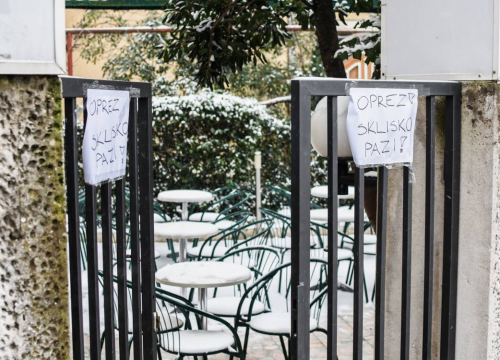 OPREZ
SKLISKO
PAZI!
OPREZ!
SKLISKO
PAZI!